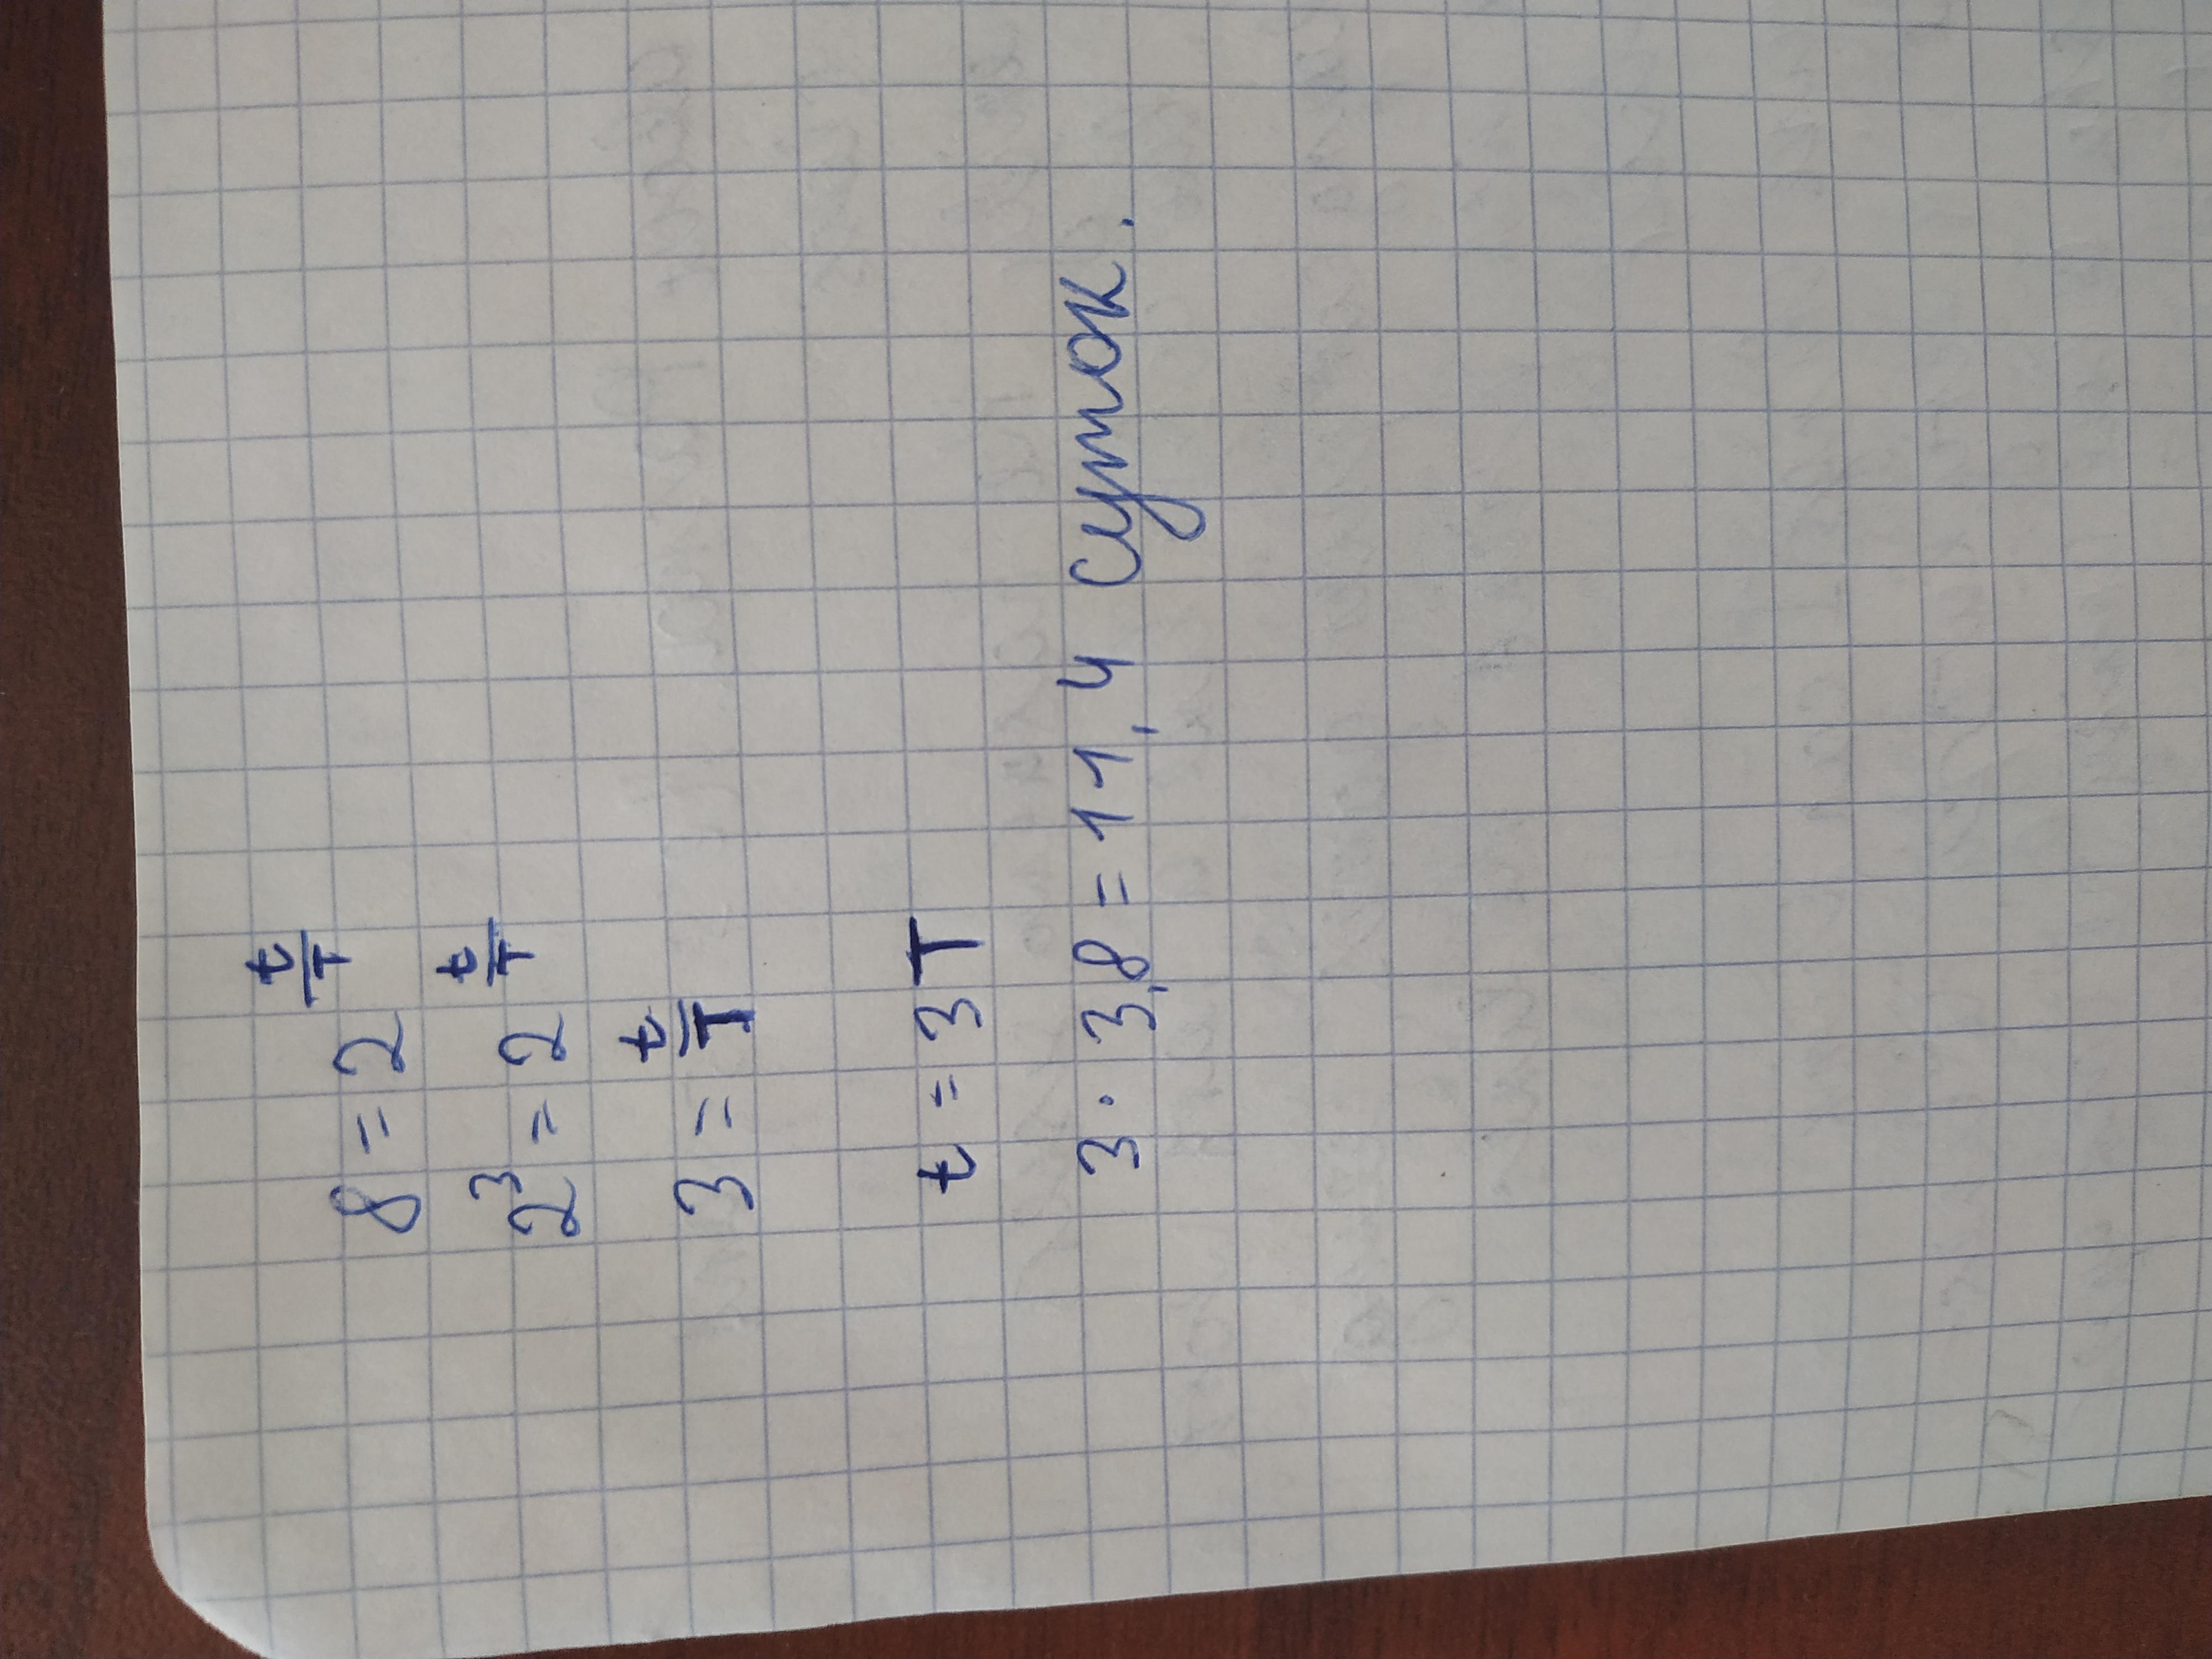 8 = 2^(t/T)
2³ = 2^(t/T)
3 = t/T
t = 3T
3 · 3,8 = 11,4 суток.